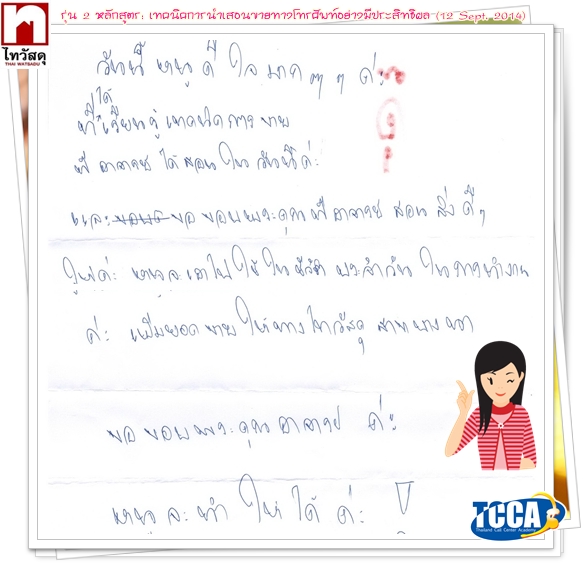 รุ่น 2 หลักสูตร: เทคนิคการนำเสนอขายทางโทรศัพท์อย่างมีประสิทธิผล (12 Sept. 2014)
ไทวัสดุ
THAI WATSADU
วันนี้ หนูดีใจมากๆๆ ค่ะ
ได้
ที่เรียนรู้เทคนิคการขาย
ที่อาจารย์ได้สอนในวันนี้ค่ะ
และขอขอบพระคุณที่อาจารย์สอนสิ่งดีๆ
ค่ะ หนูจะเอาไปใช้ใน พระจำวันในการทำงาน
ค่ะ เพิ่มยอดขายให้ทางไทวัสดุ สาขา
ขอขอบพระคุณอาจารย์ ค่ะ
หนูจะทำให้ได้ค่ะ
TCCA
Thailand Call Center Academy